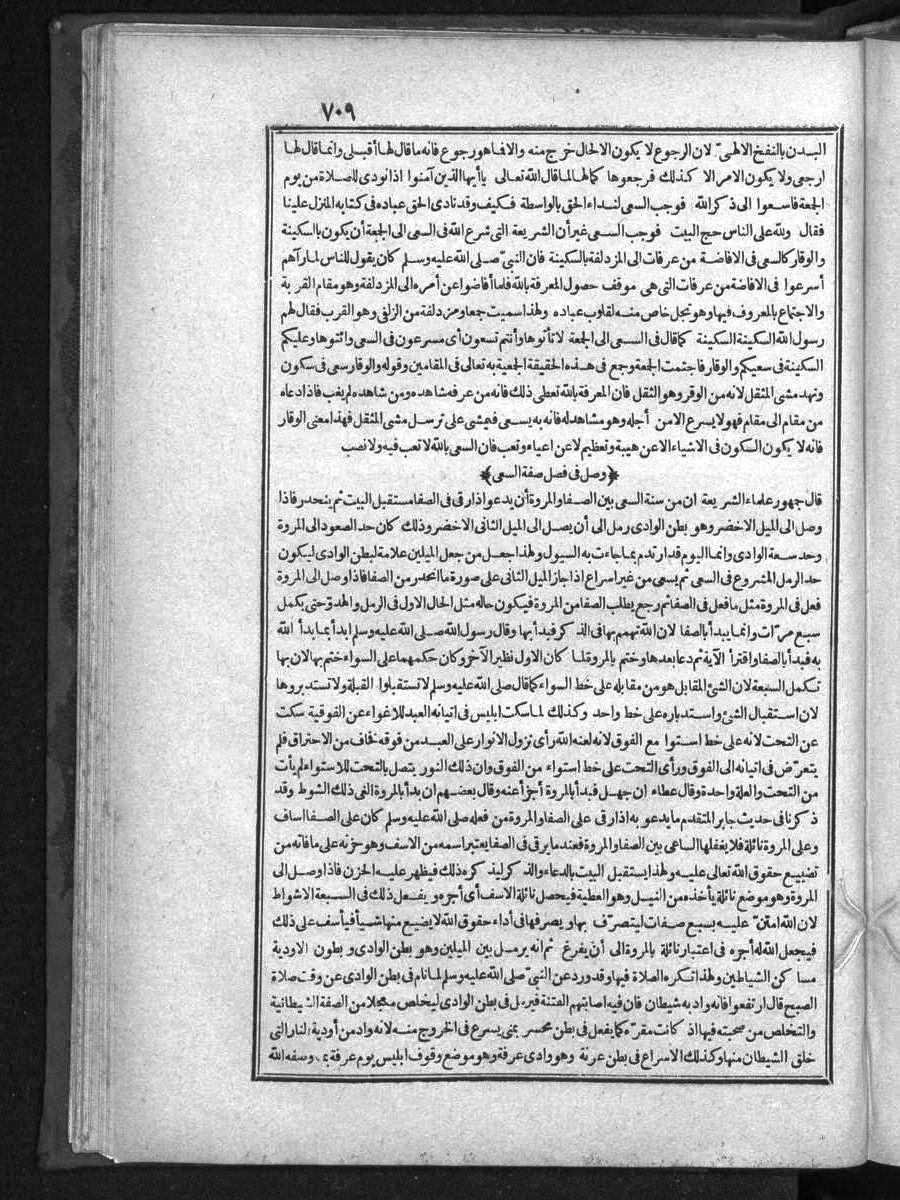 ٧٠٩
البدن بالنفخ الالهىّ لان الرجوع لا يكون الا لحال خرج منه والا فاهو رجوع فانه ما قال لها أقبلى وانما قال لها
ارجعى ولا يكون الامر الا كذلك فرجعوها كمالها لما قال الله تعالى يا أيها الذين آمنوا اذا نودى للصلاة من يوم
الجمعة فاسعوا الى ذكر الله فوجب السعى لنداء الحق بالواسطة فكيف وقد نادى الحق عباده فى كتابه المنزل علينا
فقال ولله على الناس حج البيت فوجب السعى غير أن الشريعة التى شرع الله فى السعى الى الجمعة أن يكون بالسكينة
والوقار كالسعى فى الافاضة من عرفات الى المزدلفة بالسكينة فان النبىّ صلى الله عليه وسلم كان يقول للناس لما رآهم
أسرعوا فى الافاضة من عرفات التى هى موقف حصول المعرفة بالله فلما أفاضوا عن أمره الى المزدلفة وهو مقام القربة
والاجتماع بالمعروف فيها وهو تجل خاص منه لقلوب عباده ولهذا سميت جمعا ومزدلفة من الزلفى وهو القرب فقال لهم
رسول الله السكينة السكينة كما قال فى السعى الى الجمعة لا تأتوها وأنتم تسعون أى مسرعون فى السعى وائتوها وعليكم
السكينة فى سعيكم والوقار فاجتمعت الجمعة وجمع فى هذه الحقيقة الجمعية به تعالى فى المقامين وقوله والوقار سعى فى سكون
وتهد مشى المثقل لانه من الوقر وهو الثقل فان المعرفة بالله تعطى ذلك فانه من عرفه شاهده ومن شاهده لم يغب فاذا دعاه
من مقام الى مقام فهو لا يسرع الا من أجله وهو مشاهد له فانه به يسعى فيمشى على ترسل مشى المثقل فهذا معنى الوقار
فانه لا يكون السكون فى الاشياء الا عن هيبة وتعظيم لا عن اعياء وتعب فان السعى بالله لا تعب فيه ولا نصب
﴿وصل فى فصل صفة السعى﴾
قال جهور علماء الشريعة ان من سنة السعى بين الصفا والمروة أن يدعو اذا رقى فى الصفا مستقبل البيت ثم ينحدر فاذا
وصل الى الميل الاخضر وهو بطن الوادى رمل الى أن يصل الى الميل الثانى الاخضر وذلك كان حد الصعود الى المروة
وحد سعة الوادى وانما اليوم قد ارتدم بما جاءت به السيول ولهذا جعل من جعل الميلين علامة لبطن الوادى ليكون
حد الرمل المشروع فى السعى ثم يسعى من غير اسراع اذا جاز الميل الثانى على صورة ما انحدر من الصفا فاذا وصل الى المروة
فعل فى المروة مثل ما فعل فى الصفا ثم رجع يطلب الصفا من المروة فيكون حاله مثل الحال الاول فى الرمل والهدوّ حتى يكمل
سبع مرّات وانما يبدأ بالصفا لان الله تهمم بها فى الذكر فبدأ بها وقال رسول الله صلى الله عليه وسلم ابدأ بما بدأ الله
به فبدأ بالصفا واقترأ الآية ثم دعا بعدها وختم بالمروة لما كان الاول نظير الآخر وكان حكمهما على السواء ختم بها لان بها
تكمل السبعة لان الشئ المقابل هو من مقابله على خط السواء كما قال صلى الله عليه وسلم لا تستقبلوا القبلة ولا تستدبروها
لان استقبال الشئ واستدباره على خط واحد وكذلك لما سكت ابليس فى اتيانه العبد للاغواء عن الفوقية سكت
عن التحت لانه على خط استوا مع الفوق لانه لعنه الله رأى نزول الانوار على العبد من فوقه فخاف من الاحتراق فلم
يتعرّض فى اتيانه الى الفوق ورأى التحت على خط استواء من الفوق وان ذلك النور يتصل بالتحت للاستواء لم يأت
من التحت والعلة واحدة وقال عطاء ان جهل فبدأ بالمروة أجزأ عنه وقال بعضهم ان بدأ بالمروة ألغى ذلك الشوط وقد
ذكرنا فى حديث جابر المتقدم ما يدعو به اذا رقى على الصفا والمروة من فعله صلى الله عليه وسلم كان على الصفا اساف
وعلى المروة نائلة فلا يغفلها الساعى بين الصفا والمروة فعندما يرقى فى الصفا يعتبر اسمه من الاسف وهو حزنه على ما فاته من
تضييع حقوق الله تعالى عليه ولهذا يستقبل البيت بالدعاء والذكر ليذكره ذلك فيظهر عليه الحزن فاذا وصل الى
المروة وهو موضع نائلة يأخذه من النيل وهو العطية فيحصل نائلة الاسف أى أجره ويفعل ذلك فى السبعة الاشواط
لان الله امتنّ عليه بسبع صفات ليتصرّف بها ويصرفها فى أداء حقوق الله لا يضيع منها شيأ فيأسف على ذلك
فيجعل الله له أجره فى اعتبار نائلة بالمروة الى أن يفرغ ثم انه يرمل بين الميلين وهو بطن الوادى وبطون الاودية
مساكن الشياطين ولهذا تكره الصلاة فيها وقد ورد عن النبىّ صلى الله عليه وسلم لما نام فى بطن الوادى عن وقت صلاة
الصبح قال ارتفعوا فانه واد به شيطان فان فيه اصابتهم الفتنة فيرمل فى بطن الوادى ليخلص معجلا من الصفة الشيطانية
والتخلص من صحبته فيها اذ كانت مقرّه كما يفعل فى بطن محسر بمنى يسرع فى الخروج منه لانه واد من أودية النار التى
خلق الشيطان منها وكذلك الاسراع فى بطن عرنة وهو وادى عرفة وهو موضع وقوف ابليس يوم عرفة بما وصفه الله